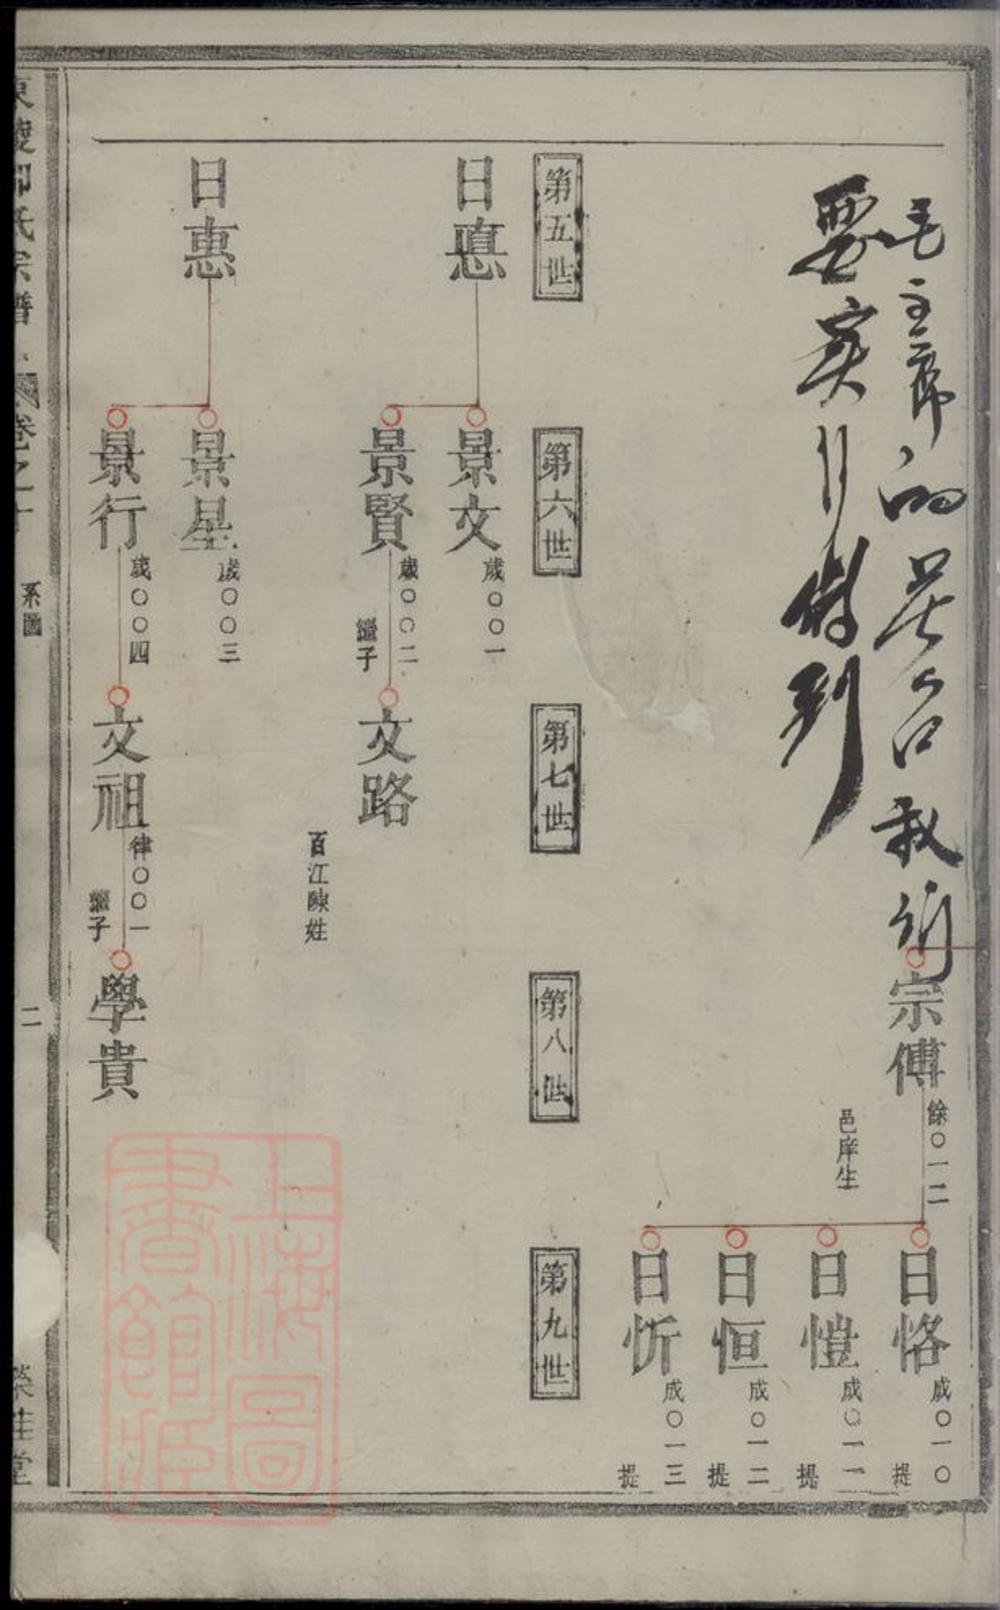 毛主席的
要实行
宗傅
餘〇一二
邑庠生
日恪
成〇一〇
提
日愷
成〇一一
提
日恒
成〇一二
提
日忻
成〇一三
提
第五世
第六世
第七世
第八世
第九世
日悳
景文
歲〇〇一
景賢
歲〇〇二
繼子
文路
百江陳姓
日惠
景星
歲〇〇三
景行
歲〇〇四
文祖
律〇〇一
繼子
學貴
氏宗譜
卷之十
系圖
二
上海圖書館藏